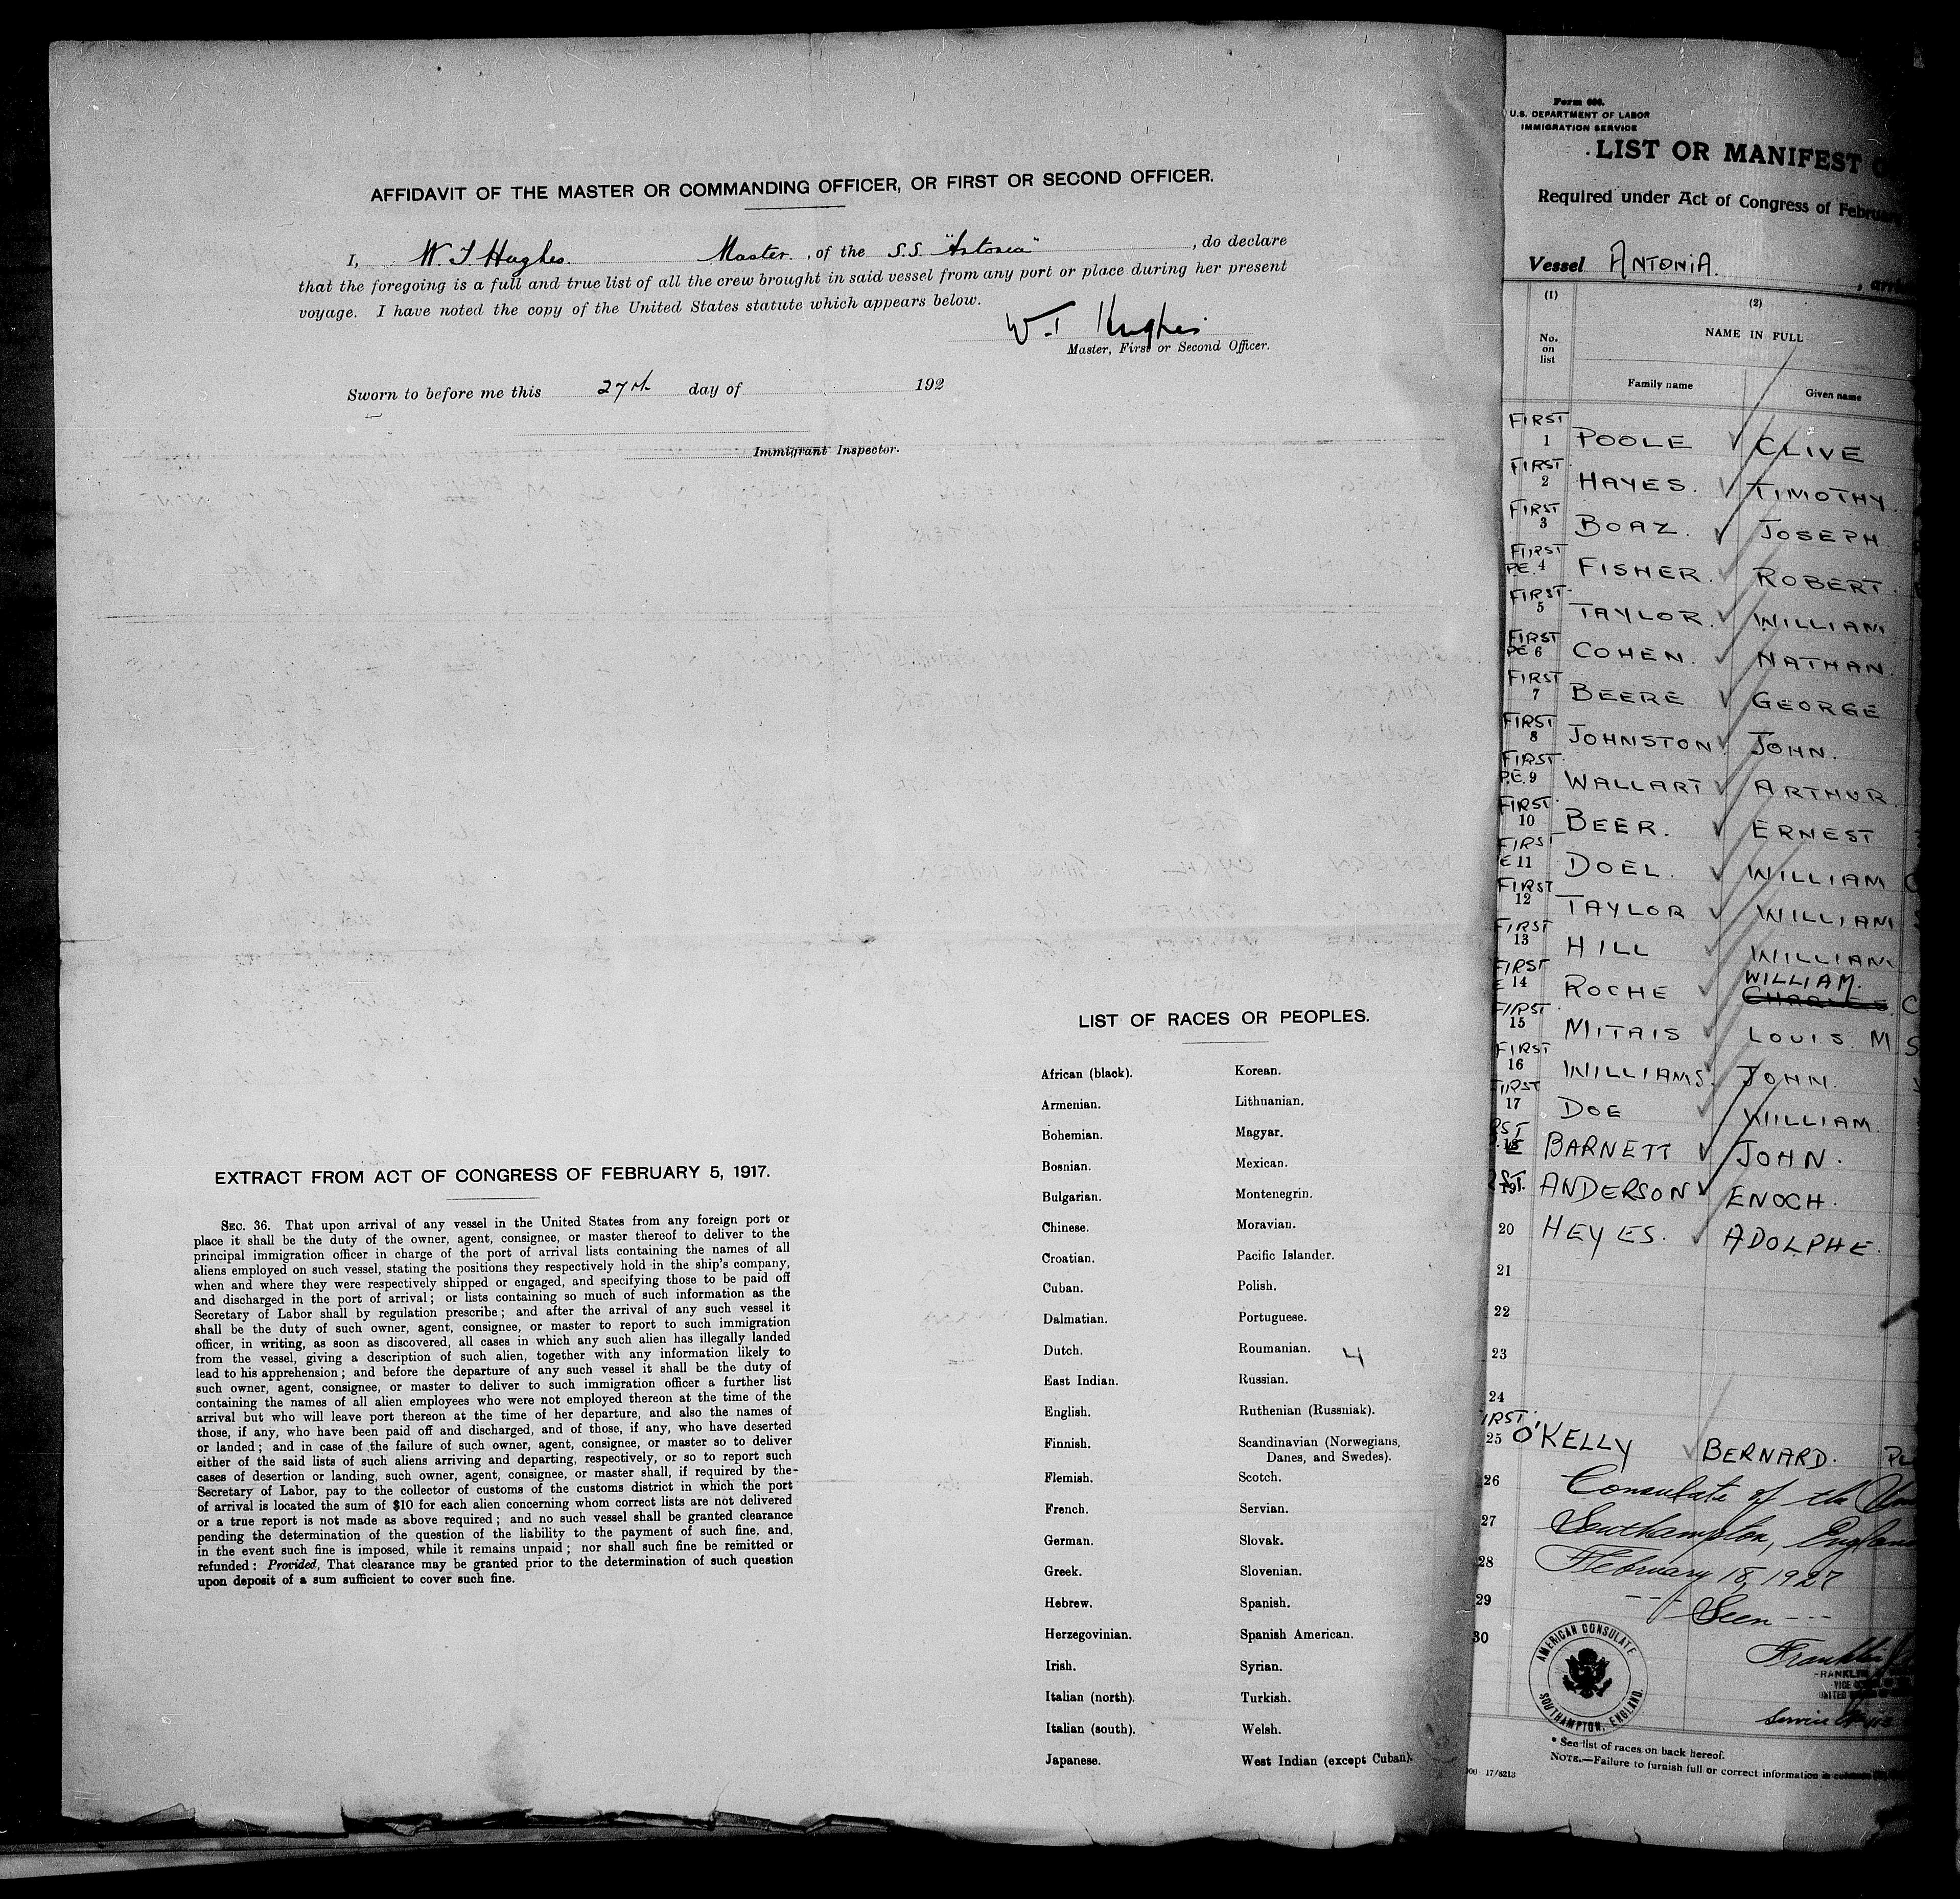 AFFIDAVIT OF THE MASTER OR COMMANDING OFFICER, OR FIRST OR SECOND OFFICER.
I, W. T Hughes. Master. , of the S.S. "Antonia" , do declare
that the foregoing is a full and true list of all the crew brought in said vessel from any port or place during her present
voyage. I have noted the copy of the United States statute which appears below.
W. T Hughes
Master, First or Second Officer.
Sworn to before me this 27th day of 192
Immigrant Inspector.
LIST OF RACES OR PEOPLES.
African (black). Korean.
Armenian. Lithuanian.
Bohemian. Magyar.
Bosnian. Mexican.
Bulgarian. Montenegrin.
Chinese. Moravian.
Croatian. Pacific Islander.
Cuban. Polish.
Dalmatian. Portuguese.
Dutch. Roumanian. 4
East Indian. Russian.
English. Ruthenian (Russniak).
Finnish. Scandinavian (Norwegians,
Danes, and Swedes).
Flemish. Scotch.
French. Servian.
German. Slovak.
Greek. Slovenian.
Hebrew. Spanish.
Herzegovinian. Spanish American.
Irish. Syrian.
Italian (north). Turkish.
Italian (south). Welsh.
Japanese. West Indian (except Cuban).
EXTRACT FROM ACT OF CONGRESS OF FEBRUARY 5, 1917.
SEC. 36. That upon arrival of any vessel in the United States from any foreign port or
place it shall be the duty of the owner, agent, consignee, or master thereof to deliver to the
principal immigration officer in charge of the port of arrival lists containing the names of all
aliens employed on such vessel, stating the positions they respectively hold in the ship's company,
when and where they were respectively shipped or engaged, and specifying those to be paid off
and discharged in the port of arrival; or lists containing so much of such information as the
Secretary of Labor shall by regulation prescribe; and after the arrival of any such vessel it
shall be the duty of such owner, agent, consignee, or master to report to such immigration
officer, in writing, as soon as discovered, all cases in which any such alien has illegally landed
from the vessel, giving a description of such alien, together with any information likely to
lead to his apprehension; and before the departure of any such vessel it shall be the duty of
such owner, agent, consignee, or master to deliver to such immigration officer a further list
containing the names of all alien employees who were not employed thereon at the time of the
arrival but who will leave port thereon at the time of her departure, and also the names of
those, if any, who have been paid off and discharged, and of those, if any, who have deserted
or landed; and in case of the failure of such owner, agent, consignee, or master so to deliver
either of the said lists of such aliens arriving and departing, respectively, or so to report such
cases of desertion or landing, such owner, agent, consignee, or master shall, if required by the-
Secretary of Labor, pay to the collector of customs of the customs district in which the port
of arrival is located the sum of $10 for each alien concerning whom correct lists are not delivered
or a true report is not made as above required; and no such vessel shall be granted clearance
pending the determination of the question of the liability to the payment of such fine, and,
in the event such fine is imposed, while it remains unpaid; nor shall such fine be remitted or
refunded: Provided, That clearance may be granted prior to the determination of such question
upon deposit of a sum sufficient to cover such fine.
Form 680.
U.S. DEPARTMENT OF LABOR
IMMIGRATION SERVICE
LIST OR MANIFEST O
Required under Act of Congress of February
Vessel ANTONIA. , arri
(1) (2)
No. on list
NAME IN FULL
Family name Given name
FIRST 1 POOLE CLIVE
FIRST 2 HAYES. TIMOTHY.
FIRST 3 BOAZ. JOSEPH.
FIRST P.E. 4 FISHER. ROBERT.
FIRST 5 TAYLOR. WILLIAM
FIRST PE 6 COHEN. NATHAN.
FIRST 7 BEERE GEORGE
FIRST 8 JOHNSTON JOHN.
FIRST P.E. 9 WALLART ARTHUR.
FIRST 10 BEER. ERNEST
FIRST E 11 DOEL. WILLIAM C
FIRST 12 TAYLOR WILLIAM S
FIRST 13 HILL WILLIAM.
FIRST E 14 ROCHE WILLIAM. CHARLES. C
FIRST 15 MITAIS LOUIS. M S
FIRST 16 WILLIAMS. JOHN.
FIRST 17 DOE WILLIAM.
RST 18 E BARNETT JOHN.
ST. 19 ANDERSON ENOCH.
20 HEYES. ADOLPHE.
21
22
23
24
IRST. 25 O'KELLY BERNARD.
26 Consulate of the Un
27 Southampton, England
28 February 18, 1927
29 --- Seen ---
30
Franklin
AMERICAN CONSULATE
SOUTHAMPTON, ENGLAND.
FRANKLIN
VICE
UNITED
Service
* See list of races on back hereof.
NOTE.—Failure to furnish full or correct information
17/8213